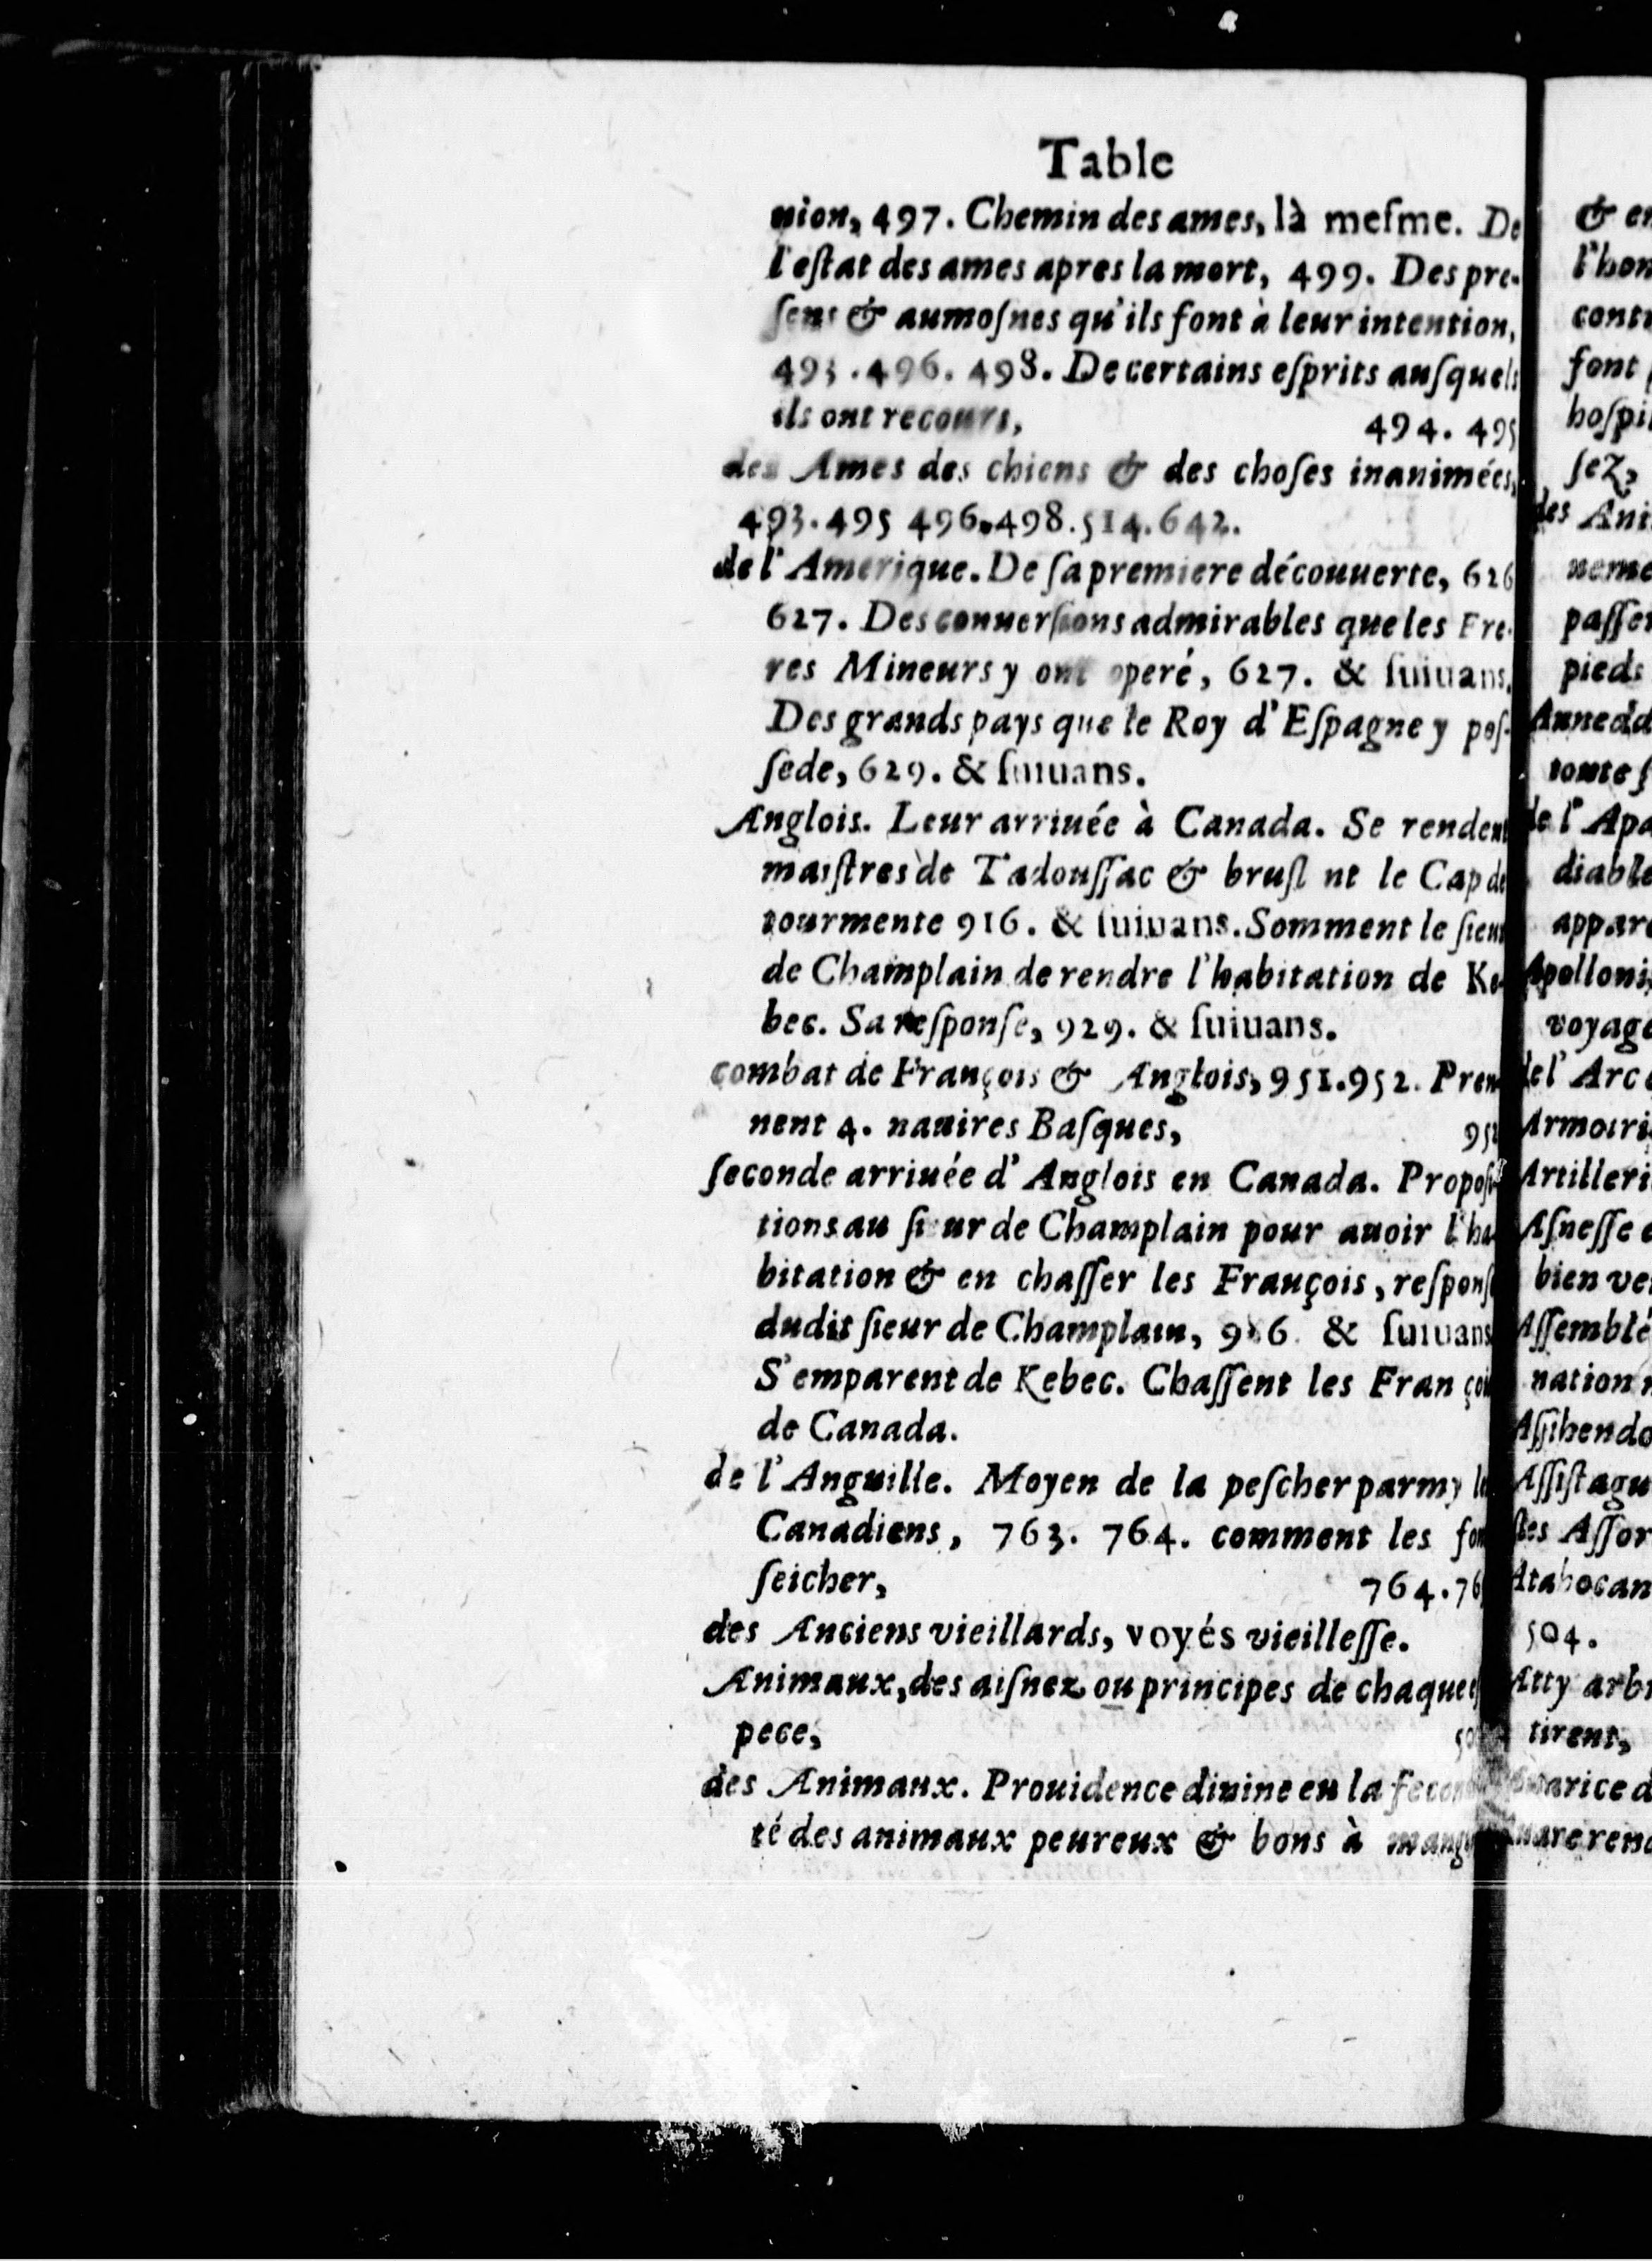 Table
nion, 497. Chemin des ames, là meſme. De
l'eſtat des ames apres la mort, 499. Des pre-
ſens & aumoſnes qu'ils font à leur intention,
493. 496. 498. De certains eſprits auſquels
ils ont recours, 494. 495
des Ames des chiens & des choſes inanimées,
493. 495 496. 498. 514. 642.
de l'Amerique. De ſa premiere découuerte, 626
627. Des conuerſions admirables que les Fre-
res Mineurs y ont operé, 627. & ſuiuans.
Des grands pays que le Roy d'Eſpagne y poſ-
ſede, 629. & ſuiuans.
Anglois. Leur arriuée à Canada. Se rendent
maiſtres de Tadouſſac & bruſl nt le Cap de
tourmente 916. & ſuiuans. Somment le ſieur
de Champlain de rendre l'habitation de Ke-
bec. Sa reſponſe, 929. & ſuiuans.
combat de François & Anglois, 951. 952. Pren
nent 4. nauires Baſques,
ſeconde arriuée d'Anglois en Canada. Propoſi-
tions au ſi ur de Champlain pour auoir l'ha
bitation & en chaſſer les François, reſponſ
dudit ſieur de Champlain, & ſuiuans
S'emparent de Kebec. Chaſſent les Fran çois
de Canada.
de l'Anguille. Moyen de la peſcher parmy
Canadiens, 763. 764. comment les font
ſeicher, 764. 76
des Anciens vieillards, voyés vieilleſſe.
Animaux, des aiſnez ou principes de chaque eſ
pece,
des Animaux. Prouidence diuine en la fecon
té des animaux peureux & bons à mang
& en
l'hon
cont
font
hoſpi
ſez,
des Ani
neme
paſſer
pieds
Annedd
toute ſ
de l'Apa
diable
appar
Apolloni
voyage
de l'Arc
Armoiri
Artilleri
Aſneſſe
bien ve
Aſſemblé
nation
Aſſihendo
Aſſiſtagu
des Aſſor
Atahocan
504.
Atty arbr
tirent,
arice d